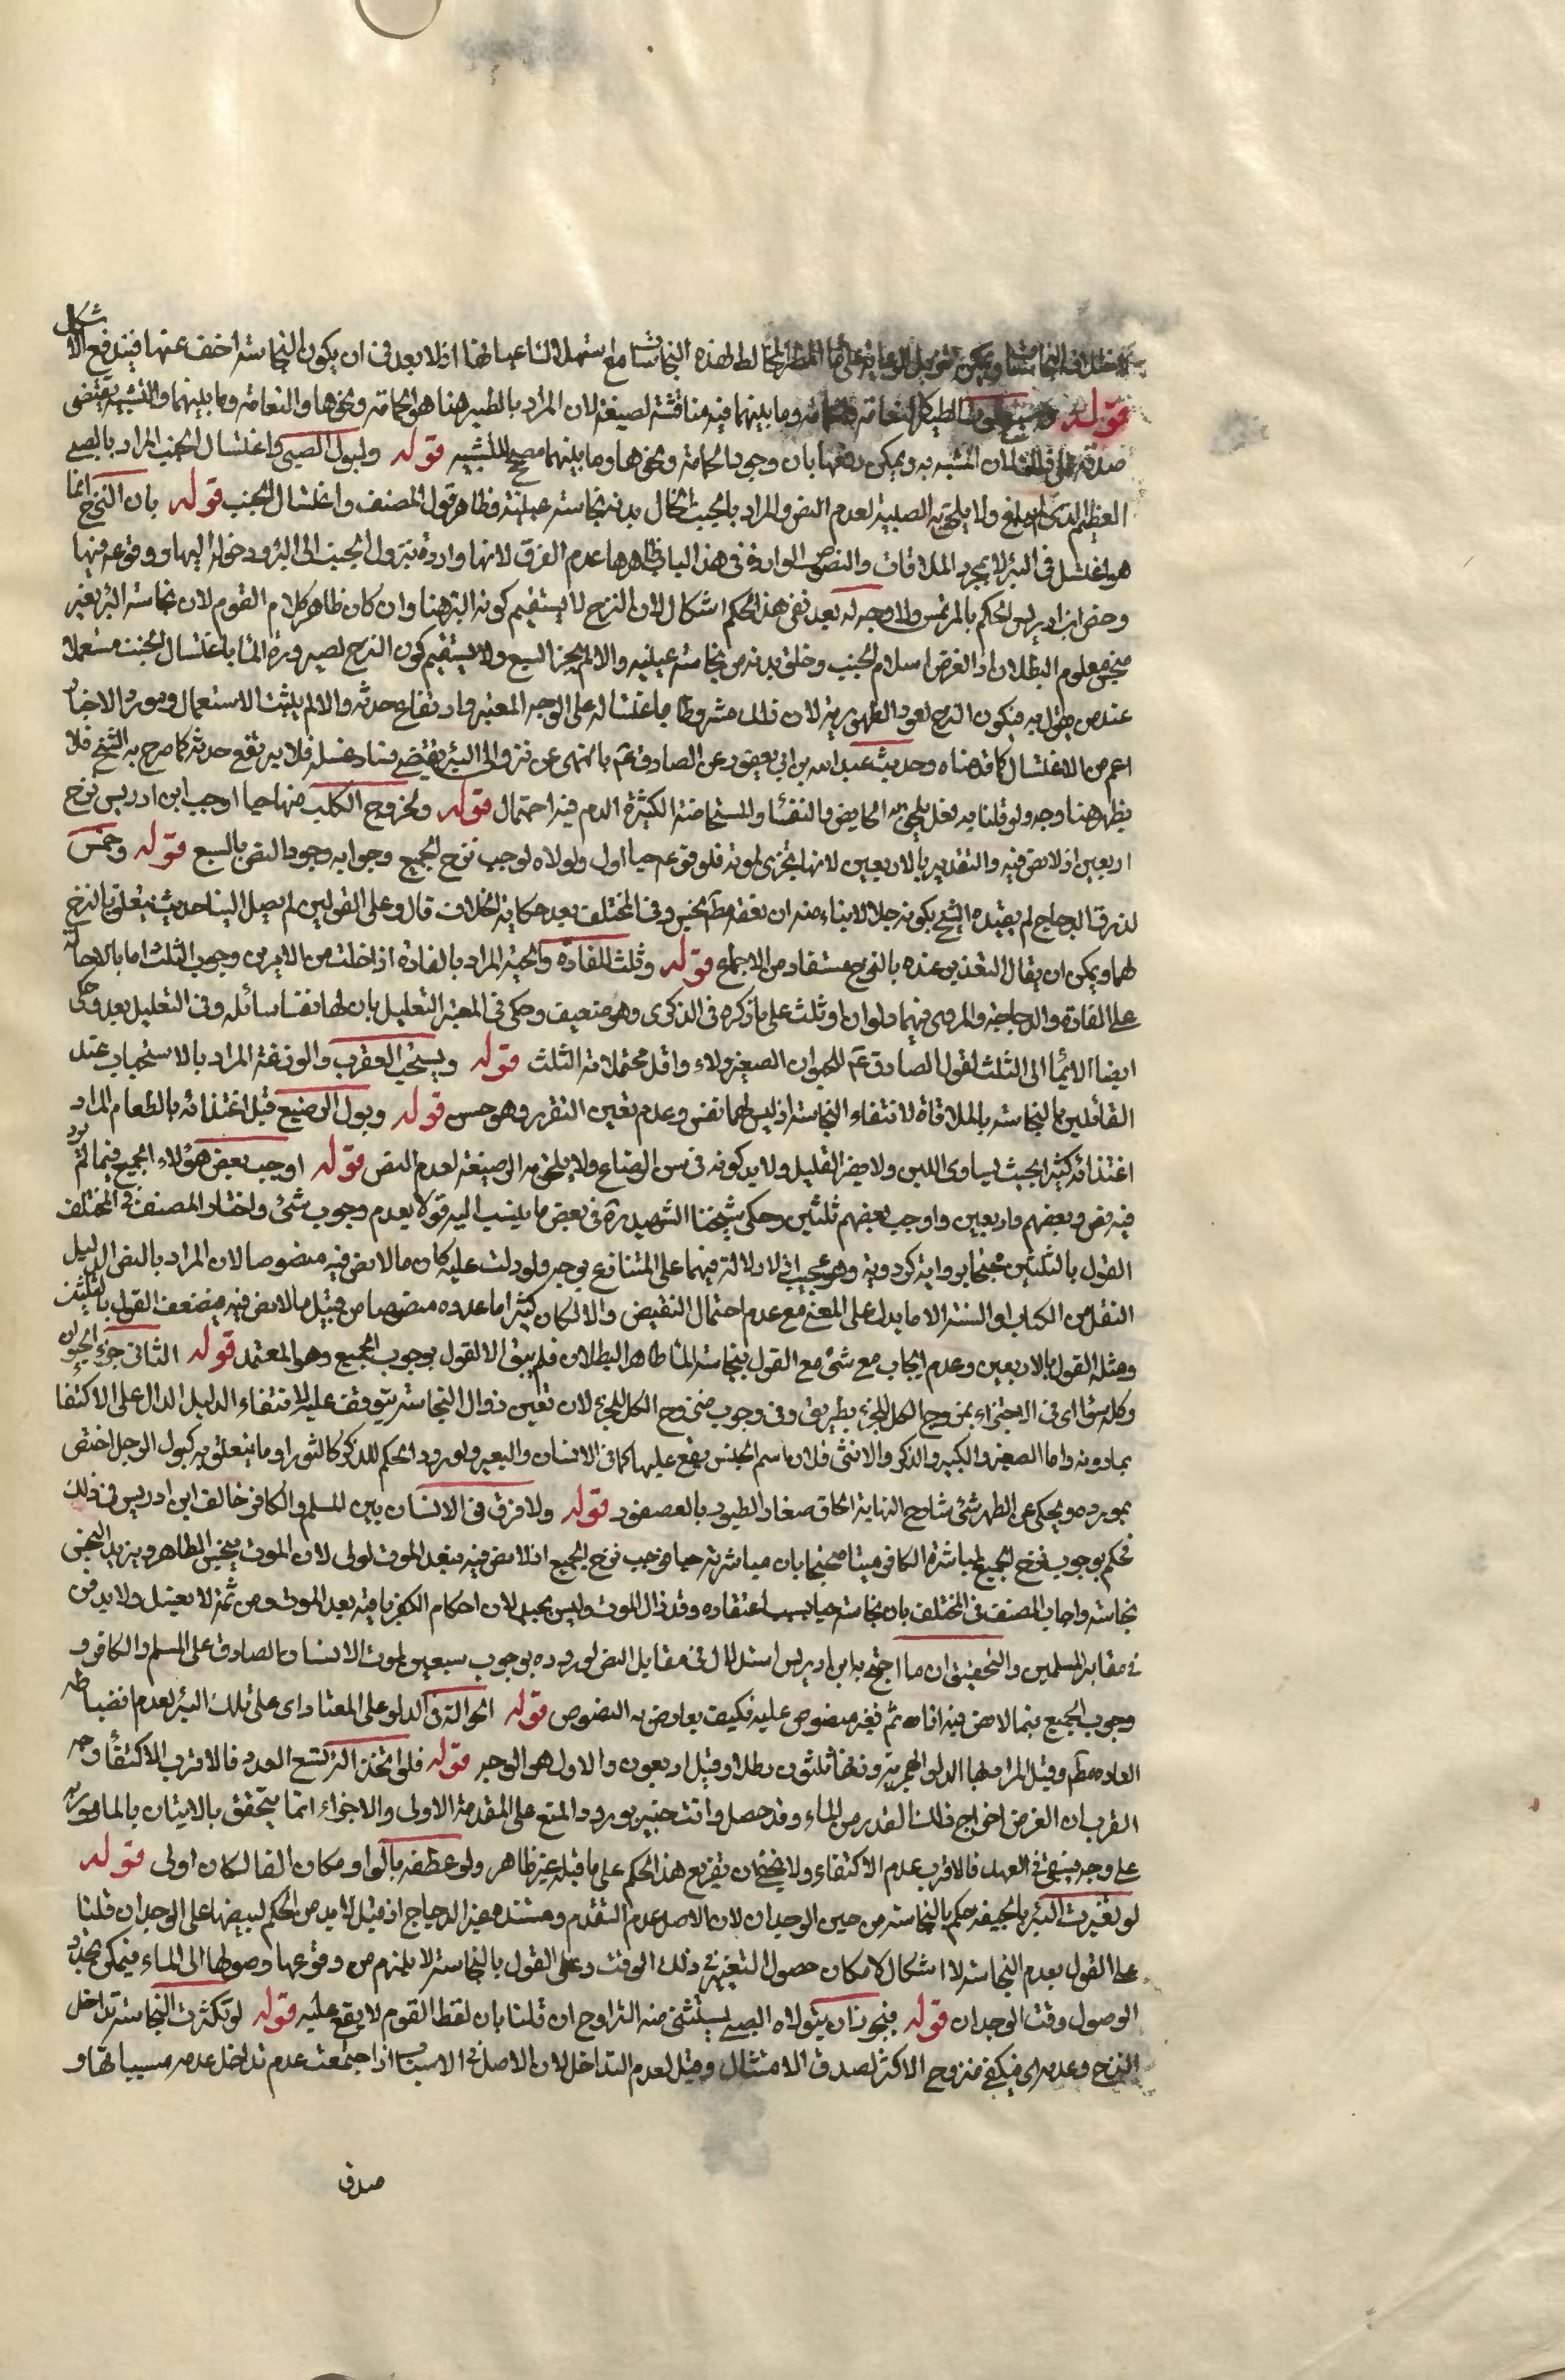 لاختلاف النجاسة ويمكن تنزيل الرواية على ماء المطر المخالط لهذه النجاسات مع استهلاك اعيانها اذ لا بعد في ان يكون النجاسة اخف عنها فيندفع الاشكال
قوله وسبع لموت الطير كالنعامة والحمامة وما بينهما فيه مناقشة لصيغة لان المراد بالطير هنا هو الحمامة ونحوها والنعامة وما بينهما والتشبيه يقتضي
صدقه على المشبه به ويمكن دفعها بان وجود الحمامة ونحوها وما بينهما مصحح للتشبيه قوله ولبول الصبي واغتسال الجنب المراد بالصبي
العظيم الذي لم يبلغ ولا يلحق به الصبية لعدم النص والمراد بالجنب الخال بدنه نجاسة عينية وظاهر قول المصنف واغتسال الجنب قوله بان النزح انما
هو لغتسل في البئر لا بمجرد الملاقات والنصوص الواردة في هذا الباب ظاهرها عدم الفرق لانها واردة بنزول الجنب الى البئر ودخوله اليها ووقوعه فيها
وخص ابن ادريس الحكم بالمرتمس ولا وجه له بعد نفي هذا الحكم اشكال لان النزح لا يستقيم كونه البئر هنا وان كان ظاهر كلام القوم لان نجاسة البئر بغير
منجس معلوم البطلان اذ الغرض اسلام الجنب وخلو بدنه من نجاسة عينية والا لم يجز السبع ولا يستقيم كون النزح لصيرورة الماء باغتسال الجنب مستعملا
عند من يقول به فيكون النزح لعود الطهورية لان ذلك مشروط باغتساله على الوجه المعتبر وارتفاع حدثه والا لم يثبت الاستعمال ومورد الاخبار
اعم من الاغتسال كما قدمناه وحديث عبد الله بن ابي يعفور عن الصادق عم بالنهي عن نزول البئر يقتضي فساد غسله فلا يرتفع حدثه كما صرح به الشيخ فلا
يظهر هنا وجه ولو قلنا به فعل يلحق به الحايض والنفساء والمستحاضة الكثيرة الدم فيه احتمال قوله ولخروج الكلب منها حيا اوجب ابن ادريس نزح
اربعين اذ لا نص فيه والتقدير بالاربعين لانها تجزي لموته فلوقوعه حيا اولى ولولاه لوجب نزح الجميع وجوابه وجود النص بالسبع قوله وخمس
لذرق الدجاج لم يقيده الشيخ بكونه جلالا بناء منه ان ذرقه مطم نجس وفي المختلف بعد حكاية الخلاف قال وعلى القولين لم يصل الينا حديث يتعلق بالنزح
لهما ويمكن ان يقال التقدير عنده بالنزح مستفاد من الاجماع قوله وثلث للفارة والحية المراد بالفارة اذا خلت من الامرين وجوب الثلث اما بالاحالة
على الفارة والدجاجة والمروي فيهما دلوان او ثلث على ما ذكره في الذكرى وهو ضعيف وحكي في المعتبر التعليل بان لها نفسا سائله وفي التعليل بعد وحكى
ايضا الايماء الى الثلث لقول الصادق عم للحيوان الصغير دلاء واقل محتملاته الثلث قوله ويستحب العقرب والوزغة المراد بالاستحباب عند
القائلين بالنجاسة بالملاقاة لانتفاء النجاسة اذ ليس لهما نفس وعدم تعين التقرر وهو حسن قوله وبول الرضيع قبل اغتذائه بالطعام المراد
اغتذائه كثيرا بحيث يساوى اللبن ولا يضر القليل ولا بد كونه في سن الرضاع ولا يلحق به الرضيعة لعدم النص قوله اوجب بعض هؤلاء الجميع فيما لم يرد
فيه نص وبعضهم اربعين واوجب بعضهم ثلثين وحكى شيخنا الشهيد ره في بعض ما ينسب اليه قولا بعدم وجوب شئ واختار المصنف في المختلف
القول بالثلثين محتجا برواية كردويه وهو عجيب اذ لا دلالة فيهما على المتنازع بوجه ولو دلت عليه كان ما لا نص فيه منصوصا لان المراد بالنص الدليل
النقل من الكتاب او السنة الا ما يدل على المعنى مع عدم احتمال النقيض والا لكان كثيرا ما عدوه منصوصا من قبيل ما لا نص فيه فيضعف القول بالثلثين
ومثله القول بالاربعين وعدم ايجاب مع شئ مع القول بنجاسة الماء ظاهر البطلان فلم يبق الا القول بوجوب الجميع وهو المعتمد قوله الثاني جزء الحيوان
وكله سواء في الاجتزاء بمنزوح الكل للجزء بطريق وفي وجوب منزوح الكل للجزء لان تعين زوال النجاسة يتوقف عليه لانتفاء الدليل الدال على الاكتفا
بما دونه واما الصغير والكبير والذكر والانثى فلان اسم الجنس يقع عليها كما في الانسان والبعير ولو ورد الحكم للذكر كالثور او ما يتعلق به كبول الرجل اختص
بمورده ويحكى عن الظهر شئ شارح النهاية الحاق صغار الطيور بالعصفور قوله ولا فرق في الانسان بين المسلم والكافر خالف ابن ادريس في ذلك
فحكم بوجوب نزح الجميع لمباشرة الكافر ميتا محتجا بان مباشرته حيا موجب نزح الجميع اذ لا نص فيه فبعد الموت اولى لان الموت ينجس الطاهر ويزيد النجس
نجاسة واجاب المصنف في المختلف بان نجاسته حيا بسبب اعتقاده وقد زال الموت وليس بجيد لان احكام الكفر باقية بعد الموت ومن ثمة لا يغسل ولا يدفن
في مقابر المسلمين والتحقيق ان ما احتج به ابن ادريس استدلال في مقابل النص لوروده بوجوب سبعين لموت الانسان الصادق على المسلم والكافر و
وجوب الجميع فيما لا نص فيه افاده ثم نفيه منصوص عليه فكيف يعارض به النصوص قوله الحوالة في الدلو على المعتاد اي على تلك البئر لعدم انضباطه
العاده مطم وقيل المراد بها الدلو الهجرية وزنها ثلثون رطلا وقيل اربعون والاول هو الوجه قوله فلو اتخذ آلة تسع العدد فالاقرب الاكتفاء وجه
القرب ان الغرض اخراج ذلك القدر من الماء وقد حصل وانت خبير بورود المنع على المقدمة الاولى والاجزاء انما يتحقق بالايتان بالمامور به
على وجه فيبقى في العهدة فالاقرب عدم الاكتفاء ولا يخفى ان تفريع هذا الحكم على ما قبله غير ظاهر ولو عطفه بالواو مكان الفا لكان اولى قوله
لو تغيرت البئر بالجيفة حكم بالنجاسة من حين الوجدان لان الاصل عدم التقدم ومستنده غير الدجاج اذ قبل لا بد من الحكم لبيضها على الوجدان قلنا
على القول بعدم النجاسة لا اشكال لامكان حصول التغير في ذلك الوقت وعلى القول بالنجاسة لا يلزم من وقوعها وصولها الى الماء فيمكن تجدد
الوصول وقت الوجدان قوله فيجوز ان يتولاه الصبي يستثنى منه التراوح ان قلنا بان لفظ القوم لا يقع عليه قوله لو تكثرت النجاسة تداخل
النزح وعدمه اي فيكفي منزوح الاكثر لصدق الامتثال وقيل لعدم التداخل لان الاصل في الاسباب اذا اجتمعت عدم تداخل عدم مسبباتها و
صدق